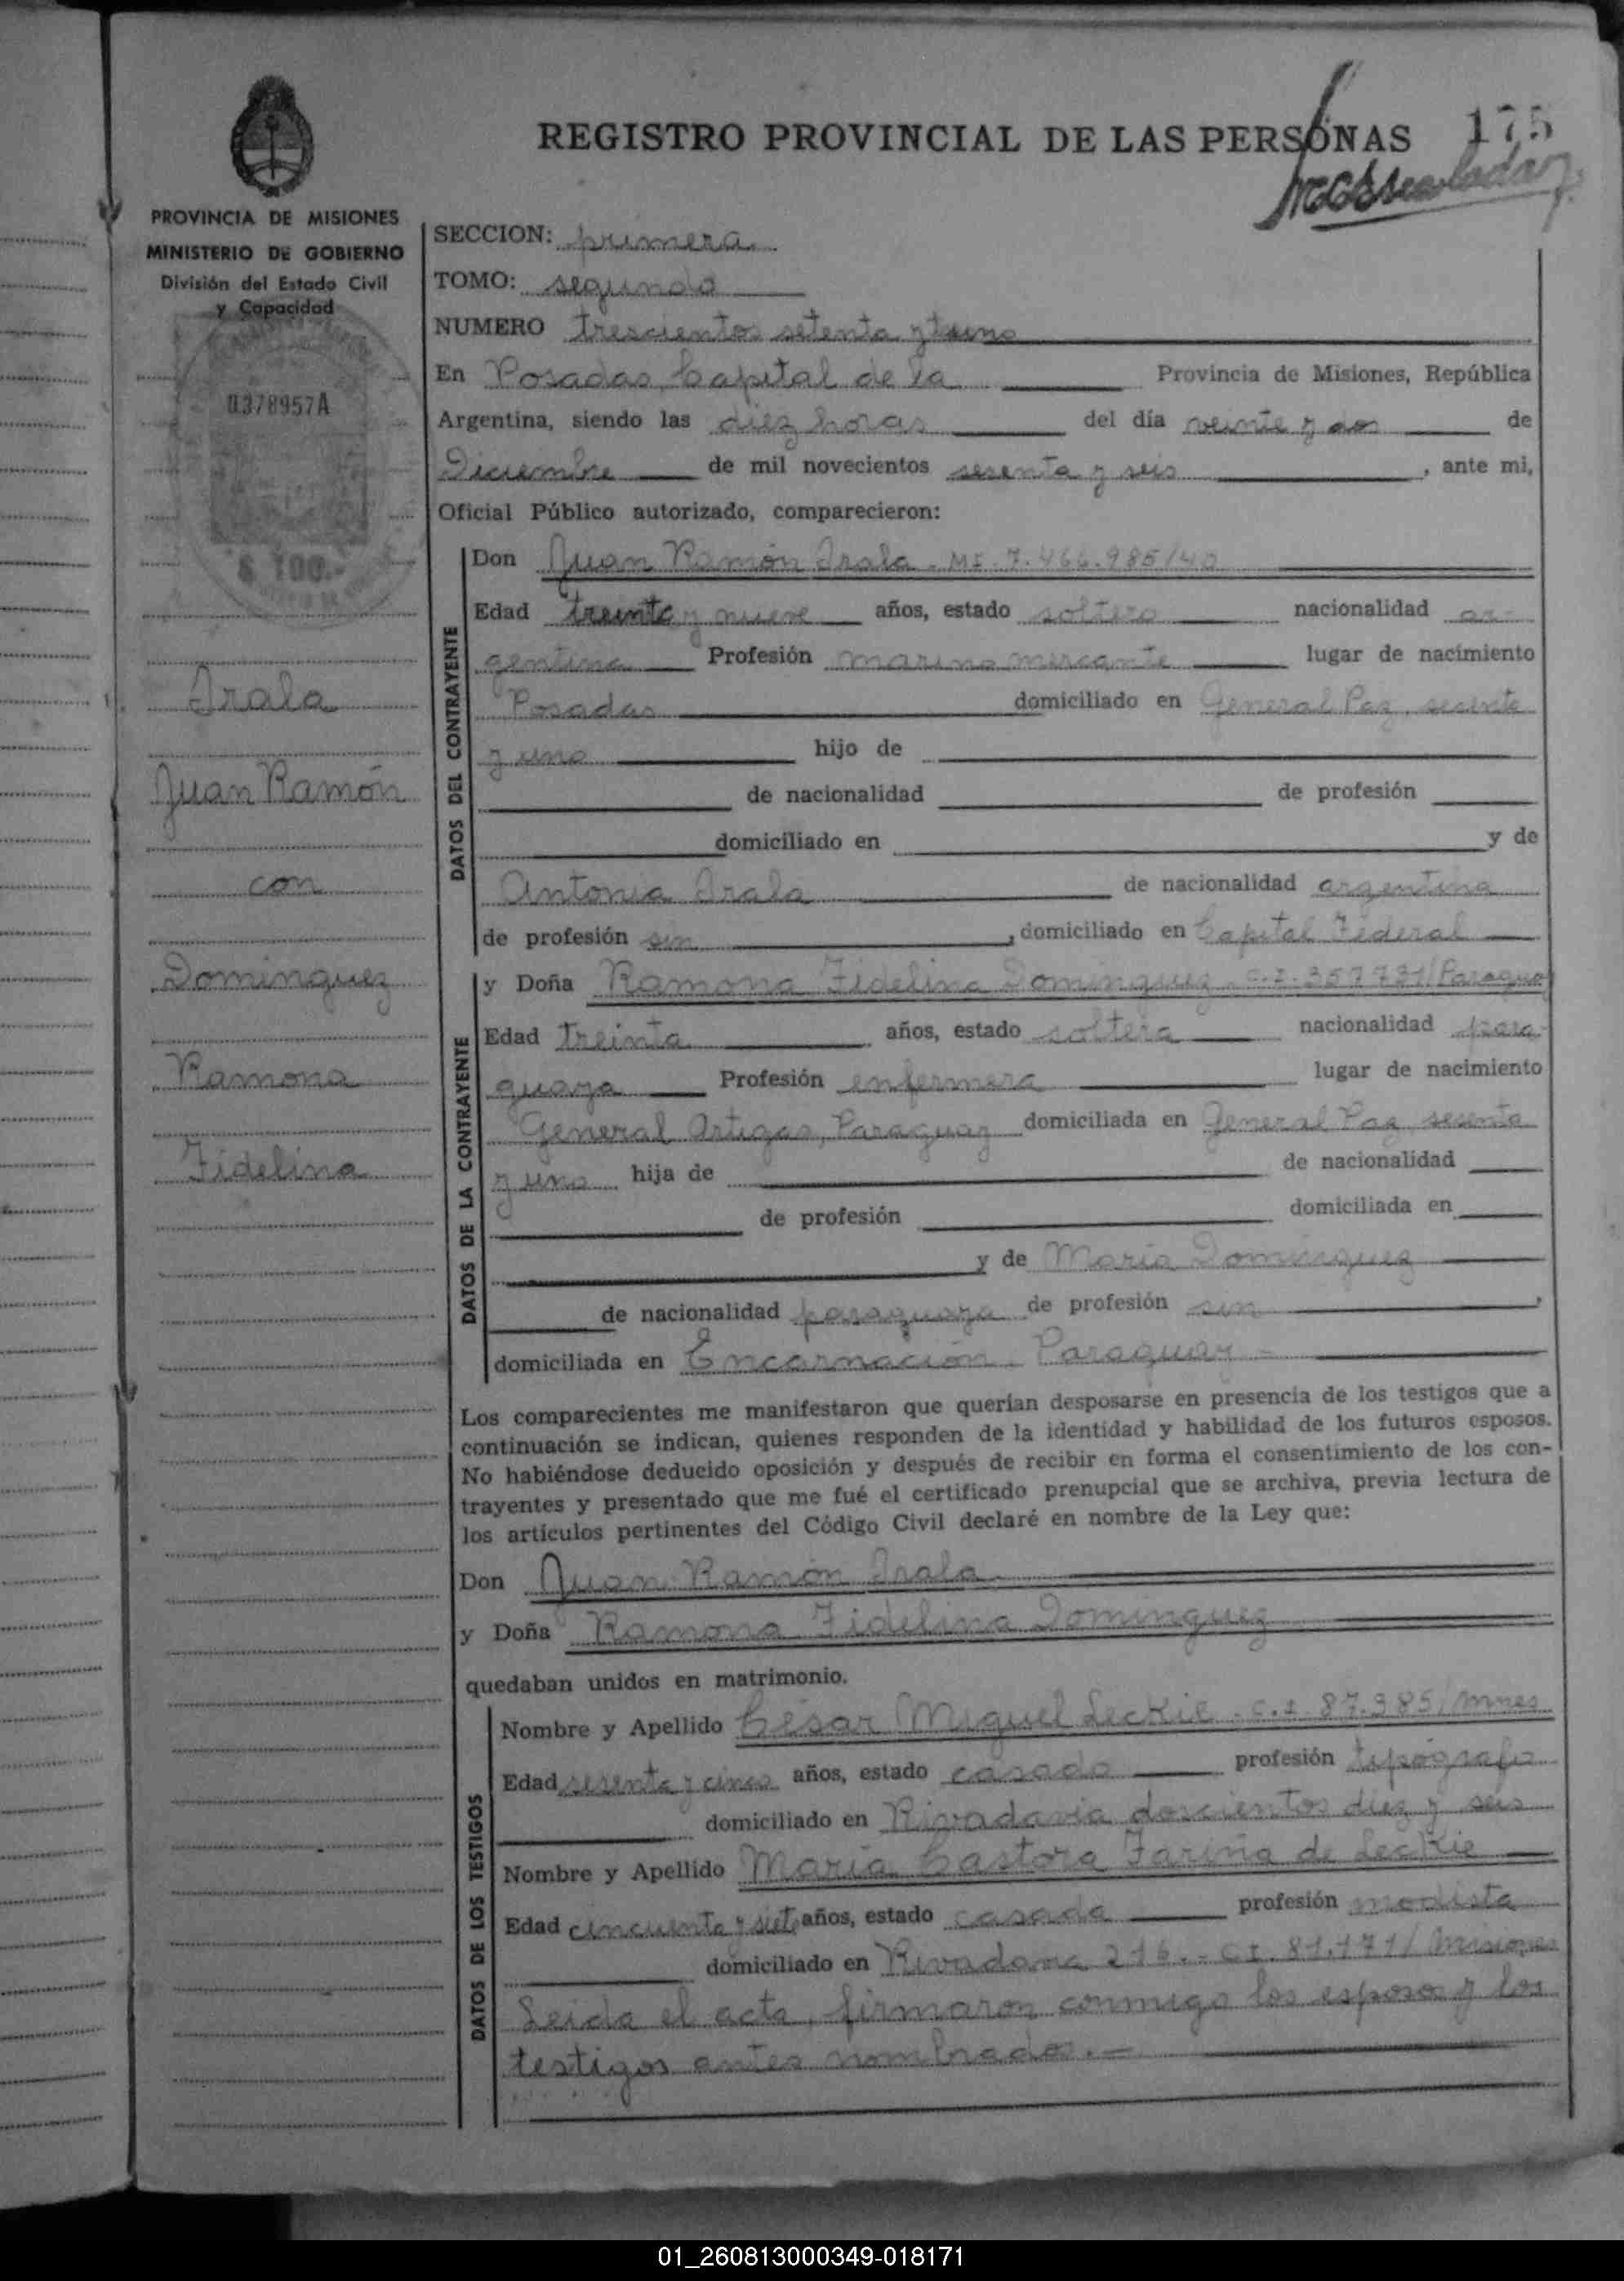 REGISTRO PROVINCIAL DE LAS PERSONAS 175
PROVINCIA DE MISIONES
MINISTERIO DE GOBIERNO
División del Estado Civil
y Capacidad
0378957A
$ 100.-
Irala
Juan Ramón
con
Dominguez
Ramona
Fidelina
SECCION: primera
TOMO: segundo
NUMERO trescientos setenta y uno
En Posadas, Capital de la Provincia de Misiones, República
Argentina, siendo las diez horas del día veinte y dos de
Diciembre de mil novecientos sesenta y seis, ante mi,
Oficial Público autorizado, comparecieron:
DATOS DEL CONTRAYENTE
Don Juan Ramón Irala. MI. 7.466.985/40
Edad treinta y nueve años, estado soltero nacionalidad ar-
gentina Profesión marino mercante lugar de nacimiento
Posadas domiciliado en General Paz sesenta
y uno hijo de
de nacionalidad de profesión
domiciliado en y de
Antonia Irala de nacionalidad argentina
de profesión sin, domiciliado en Capital Federal
DATOS DE LA CONTRAYENTE
y Doña Ramona Fidelina Dominguez. C.I. 357731/Paraguay
Edad treinta años, estado soltera nacionalidad para-
guaya Profesión enfermera lugar de nacimiento
General Artigas, Paraguay domiciliada en General Paz sesenta
y uno hija de de nacionalidad
de profesión domiciliada en
y de María Dominguez
de nacionalidad paraguaya de profesión sin,
domiciliada en Encarnación Paraguay -
Los comparecientes me manifestaron que querían desposarse en presencia de los testigos que a
continuación se indican, quienes responden de la identidad y habilidad de los futuros esposos.
No habiéndose deducido oposición y después de recibir en forma el consentimiento de los con-
trayentes y presentado que me fué el certificado prenupcial que se archiva, previa lectura de
los artículos pertinentes del Código Civil declaré en nombre de la Ley que:
Don Juan Ramón Irala
y Doña Ramona Fidelina Dominguez
quedaban unidos en matrimonio.
DATOS DE LOS TESTIGOS
Nombre y Apellido César Miguel Leckie. C.I 87.385/Mnes
Edad sesenta y cinco años, estado casado profesión tipógrafo
domiciliado en Rivadavia doscientos diez y seis
Nombre y Apellido María Castora Fariña de Leckie
Edad cincuenta y siete años, estado casada profesión modista
domiciliado en Rivadavia 216.- C.I. 81.171/Misiones
Leida el acta, firmaron conmigo los esposos y los
testigos antes nombrados.-
01_260813000349-018171